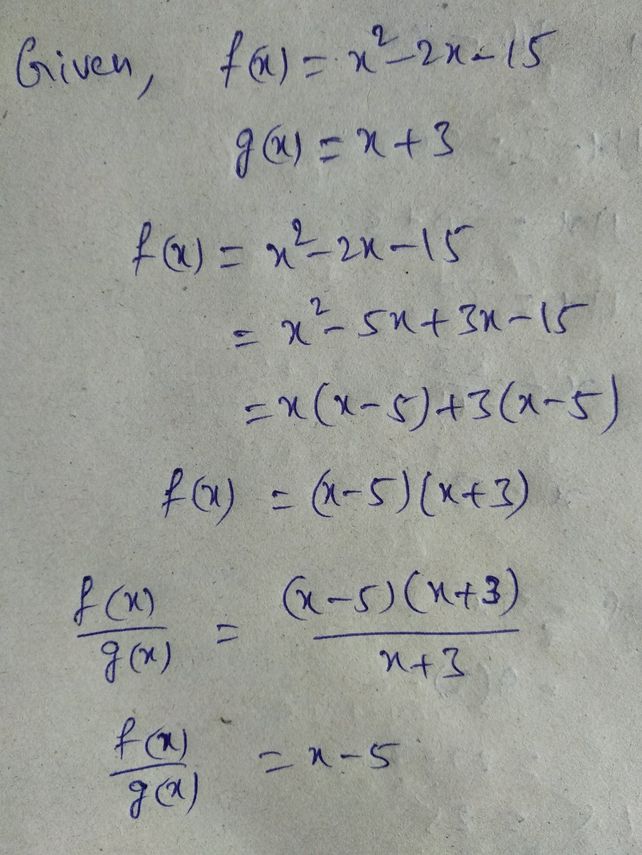 Given, f(x) = x² - 2x - 15
g(x) = x + 3
f(x) = x² - 2x - 15
= x² - 5x + 3x - 15
= x(x-5) + 3(x-5)
f(x) = (x-5)(x+3)
f(x)/g(x) = (x-5)(x+3)/x+3
f(x)/g(x) = x-5